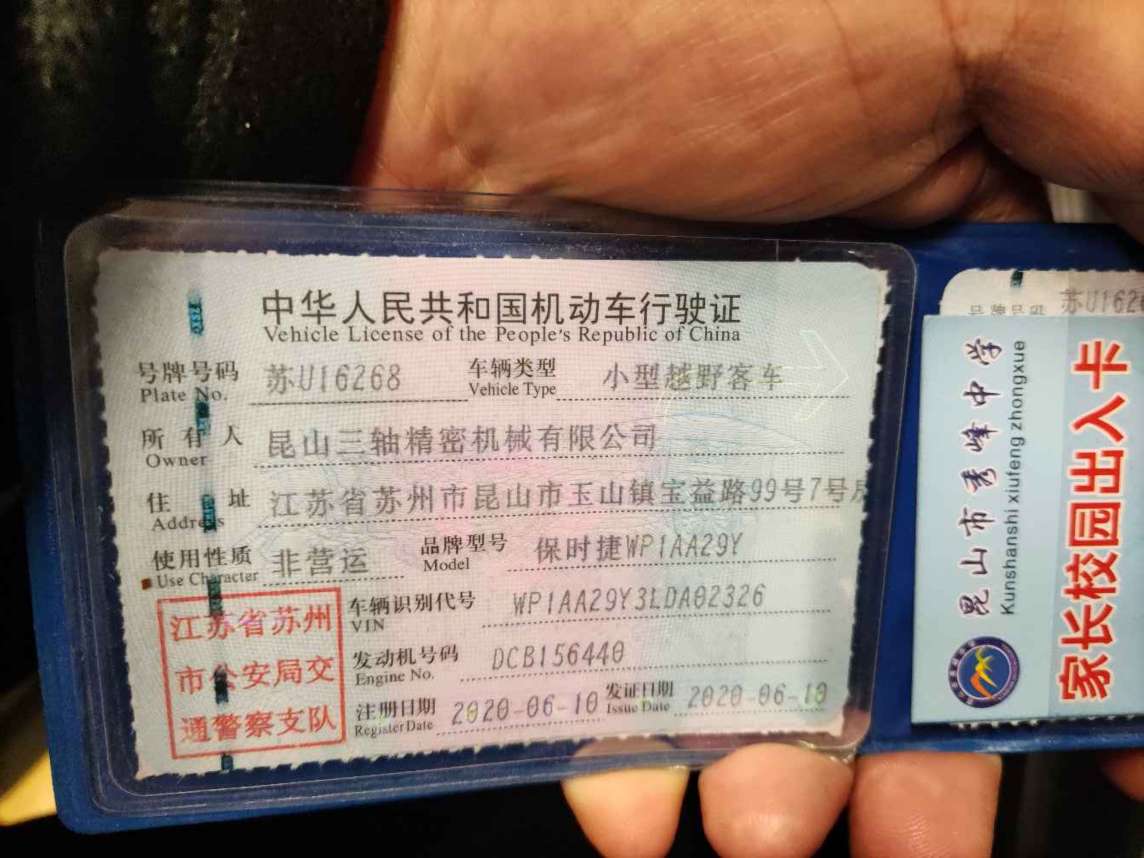 中华人民共和国机动车行驶证
Vehicle License of the People's Republic of China
号牌号码 苏U16268 车辆类型 小型越野客车
Plate No. Vehicle Type
所有人 昆山三轴精密机械有限公司
Owner
住址 江苏省苏州市昆山市玉山镇宝益路99号7号
Address
使用性质 非营运 品牌型号 保时捷WP1AA29Y
Use Character Model
车辆识别代号 WP1AA29Y3LDA02326
VIN
发动机号码 DCB156440
Engine No.
注册日期 2020-06-10 发证日期 2020-06-10
Register Date Issue Date
江苏省苏州
市公安局交
通警察支队
号牌号码 苏U162
昆山市秀峰中学
Kunshanshi xiufeng zhongxue
家长校园出入卡